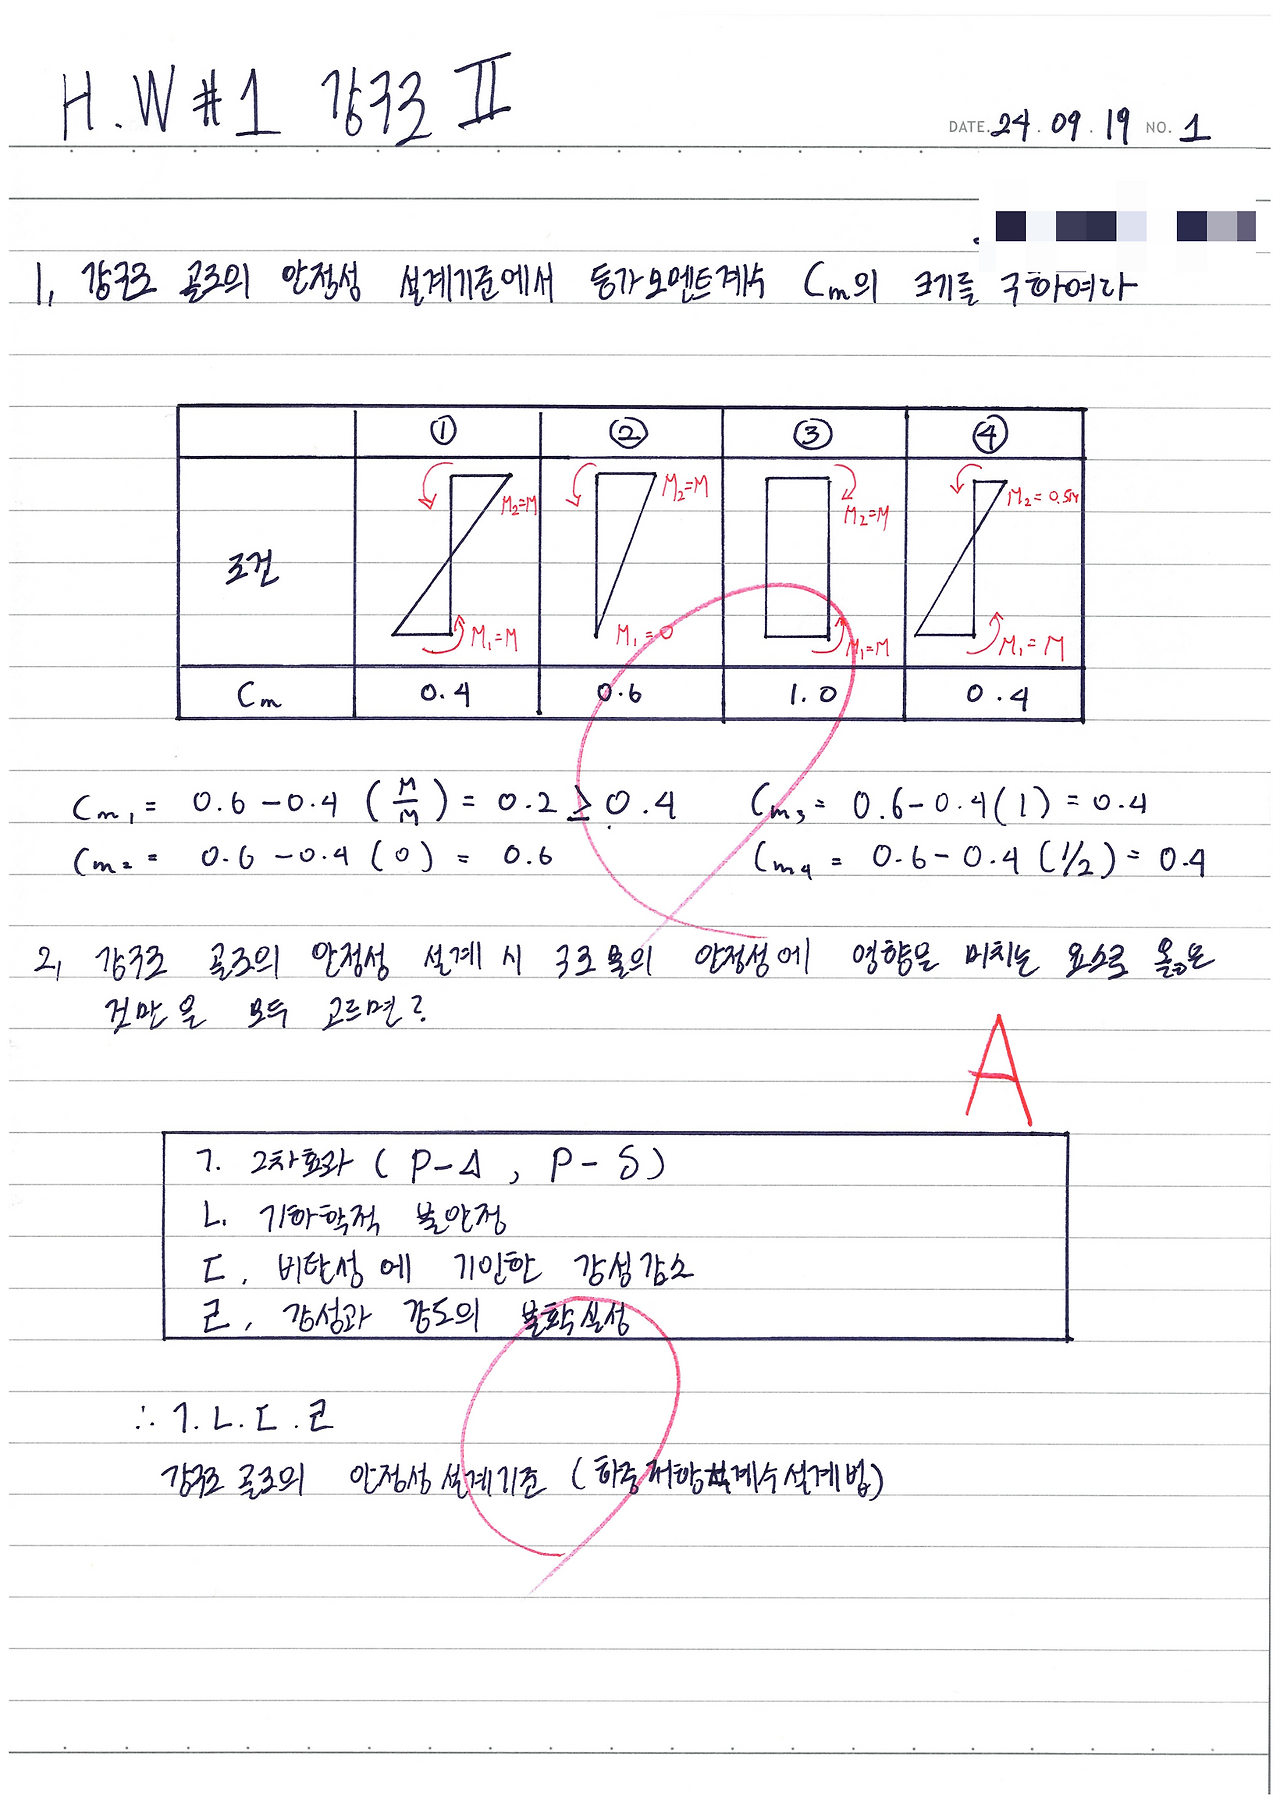 H.W#1 강구조 II
DATE. 24. 09. 19 NO. 1
1, 강구조 골조의 안정성 설계기준에서 등가모멘트계수 Cm의 크기를 구하여라
① ② ③ ④
조건
M₂=M M₂=M M₂=M M₂=0.5M
M₁=M M₁=0 M₁=M M₁=M
Cm 0.4 0.6 1.0 0.4
Cm₁ = 0.6-0.4 (M/M) = 0.2 ≥ 0.4 Cm₃ = 0.6-0.4(1) = 0.4
Cm₂ = 0.6-0.4(0) = 0.6 Cm₄ = 0.6-0.4(1/2) = 0.4
2, 강구조 골조의 안정성 설계 시 구조물의 안정성에 영향을 미치는 요소로 옳은
것만을 모두 고르면?
A
ㄱ. 2차효과 (P-Δ, P-δ)
ㄴ. 기하학적 불안정
ㄷ. 비탄성에 기인한 강성감소
ㄹ. 강성과 강도의 불확실성
∴ ㄱ.ㄴ.ㄷ.ㄹ
강구조 골조의 안정성 설계기준 (하중저항계수설계법)